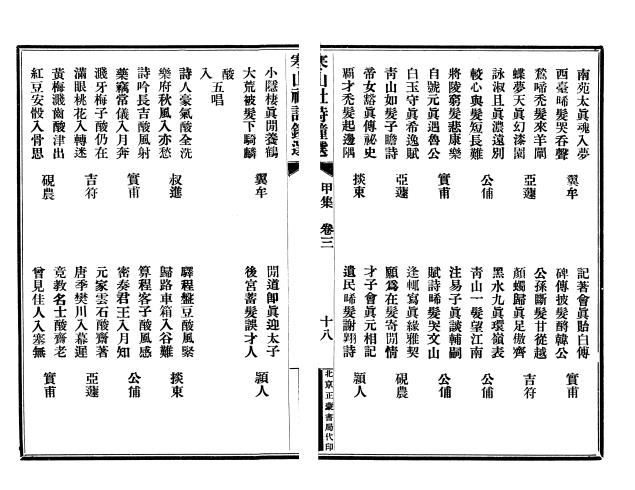 南苑太眞魂入夢
西臺晞髮哭吞聲　翼牟
啼禿髮來羊
蝶夢天眞幻漆園　亞蘧
詠淑且眞濃遠別
較心與髮短長難　公俌
將陵窮髮悲康樂
自號元眞遇魯公　實甫
白玉守眞希逸賦
青山如髮子瞻詩　亞蘧
帝女谿眞傳祕史
覇才禿髮起邊隅　掞東
記著會眞貽白傅
碑傳披髮酹韓公　實甫
公孫斷髮甘從越
顏蠋歸眞足傲齊　吉符
黑水九眞環嶺表
青山一髮望江南　公俌
注易子眞談輔嗣
賦詩晞髮哭文山　公俌
逢輒寫眞緣雅契
願爲在髮寄閒情　硯農
才子會眞元相記
遺民晞髮謝翱詩　穎人
寒山社詩鐘選　甲集　卷三　十八
北京正蒙書局代印
小隱棲眞閒養鶴
大荒被髮下騎麟　翼牟
閒道卽眞迎太子
後宮蓄髮誤才人　穎人
酸
入　五唱
詩人豪氣酸全洗
樂府秋風入亦愁　叔進
詩吟長吉酸風射
藥竊常儀入月奔　實甫
濺牙梅子酸仍在
滿眼桃花入轉迷　吉符
黃梅濺齒酸津出
紅豆安骰入骨思　硯農
驛程盤豆酸風緊
歸路車箱入谷難　掞東
算程客子酸風感
密奏君王入月知　公俌
元家雲石酸齋著
唐季樊川入幕遲　亞蘧
竟教名士酸齋老
曾見佳人入塞無　實甫